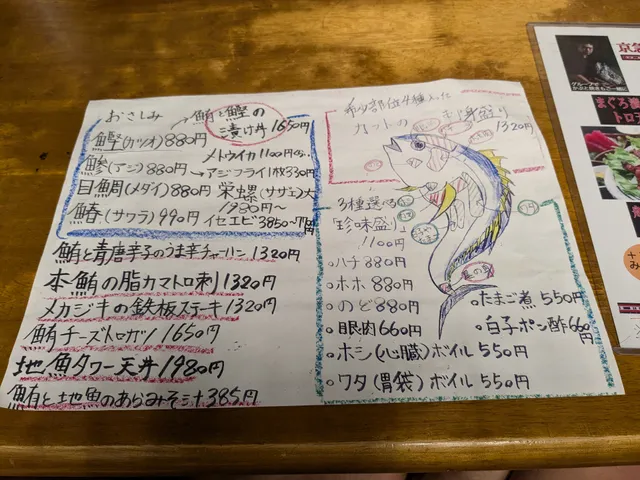 おさしみ
鮪と鰹の
漬け丼 1650円
鰹(カツオ)880円
メトウイカ1100円
鯵(アジ)880円
→アジフライ1枚330円
目鯛(メダイ)880円
栄螺(サザエ)大
1980円〜
鰆(サワラ)990円
イセエビ3850〜
鮪と青唐辛子のうま辛チャーハン 1320円
本鮪の脂カマトロ刺 1320円
メカジキの鉄板ステーキ 1320円
鮪チーズトロカツ 1650円
地魚タワー天丼 1980円
鮪と地魚のあらみそ汁 385円
希少部位4種入った
カットの
刺身盛り
1320円
3種選べる
「珍味盛」
1100円
ハチ 880円
ホホ 880円
のど 880円
眼肉 660円
ホシ(心臓)ボイル 550円
ワタ(胃袋)ボイル 550円
たまご煮 550円
白子ポン酢 660円
まぐろ
トロ